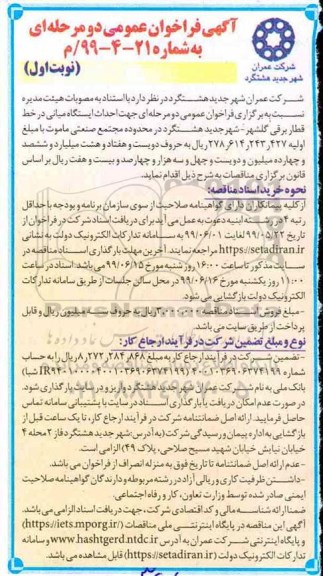 آگهی فراخوان عمومی دو مرحله‌ای
به شماره ۲۱-۴-۹۹/م
(نوبت اول)
شرکت عمران
شهر جدید هشتگرد
شرکت عمران شهر جدید هشتگرد در نظر دارد با استناد به مصوبات هیئت مدیره
نسبت به برگزاری فراخوان عمومی دو مرحله‌ای جهت احداث ایستگاه میانی در خط
قطار برقی گلشهر - شهر جدید هشتگرد در محدوده مجتمع صنعتی ماموت با مبلغ
اولیه ۲۷۸,۶۱۴,۲۴۳,۴۲۷ ریال به حروف دویست و هفتاد و هشت میلیارد و ششصد
و چهارده میلیون و دویست و چهل و سه هزار و چهارصد و بیست و هفت ریال بر اساس
قانون برگزاری مناقصات به شرح ذیل اقدام نماید.
نحوه خرید اسناد مناقصه:
از کلیه پیمانکاران دارای گواهینامه صلاحیت از سوی سازمان برنامه و بودجه با حداقل
رتبه ۴ در رشته ابنیه دعوت به عمل می آید برای دریافت اسناد شرکت در فراخوان از
تاریخ ۹۹/۰۵/۲۲ لغایت ۹۹/۰۶/۰۱ به سامانه تدارکات الکترونیک دولت به نشانی
https://setadiran.ir مراجعه نمایند. آخرین مهلت بارگذاری اسناد مناقصه در
سایت مذکور تا ساعت ۱۶:۰۰ روز شنبه مورخ ۹۹/۰۶/۱۵ می باشد. اسناد در ساعت
۱۱:۰۰ روز یکشنبه مورخ ۹۹/۰۶/۱۶ در محل سالن جلسات از طریق سامانه تدارکات
الکترونیک دولت بازگشایی می شود.
- مبلغ فروش اسناد مناقصه ریال به حروف سه میلیون ریال و قابل
پرداخت از طریق سایت می باشد.
نوع و مبلغ تضمین شرکت در فرآیند ارجاع کار:
- تضمین شرکت در فرآیند ارجاع کار به مبلغ ۸,۲۷۲,۲۸۴,۸۶۸ ریال را به حساب
شماره شبا
بانک ملی به نام شرکت عمران شهر جدید هشتگرد واریز و در سامانه بارگذاری شود.
در صورت عدم امکان دریافت یا بارگذاری اسناد در سایت با پشتیبانی سامانه تماس
حاصل فرمایید. ارائه اصل ضمانتنامه شرکت در فرآیند ارجاع کار، تا یک ساعت قبل از
بازگشایی به اداره پیمان و رسیدگی شرکت (به آدرس: شهر جدید هشتگرد فاز ۲ محله ۴
خیابان نیایش خیابان شهید مسیح صلاحی، پلاک ۴۹) الزامی است.
- عدم ارائه اصل ضمانتنامه تا تاریخ فوق به منزله انصراف از فراخوان می باشد.
- داشتن ظرفیت کاری و ریالی آزاد در رشته مربوطه و دارندگان گواهینامه صلاحیت
ایمنی صادر شده توسط وزارت تعاون، کار و رفاه اجتماعی.
ضمنا ارائه شناسه مالی و کد اقتصادی شرکت، جهت دریافت اسناد الزامی می باشد.
آگهی این مناقصه در پایگاه اینترنتی ملی مناقصات (https://iets.mporg.ir/)
و پایگاه اینترنتی شرکت عمران به آدرس www.hashtgerd.ntdc.ir و سامانه
تدارکات الکترونیک دولت (https://setadiran.ir) قابل مشاهده می باشد.